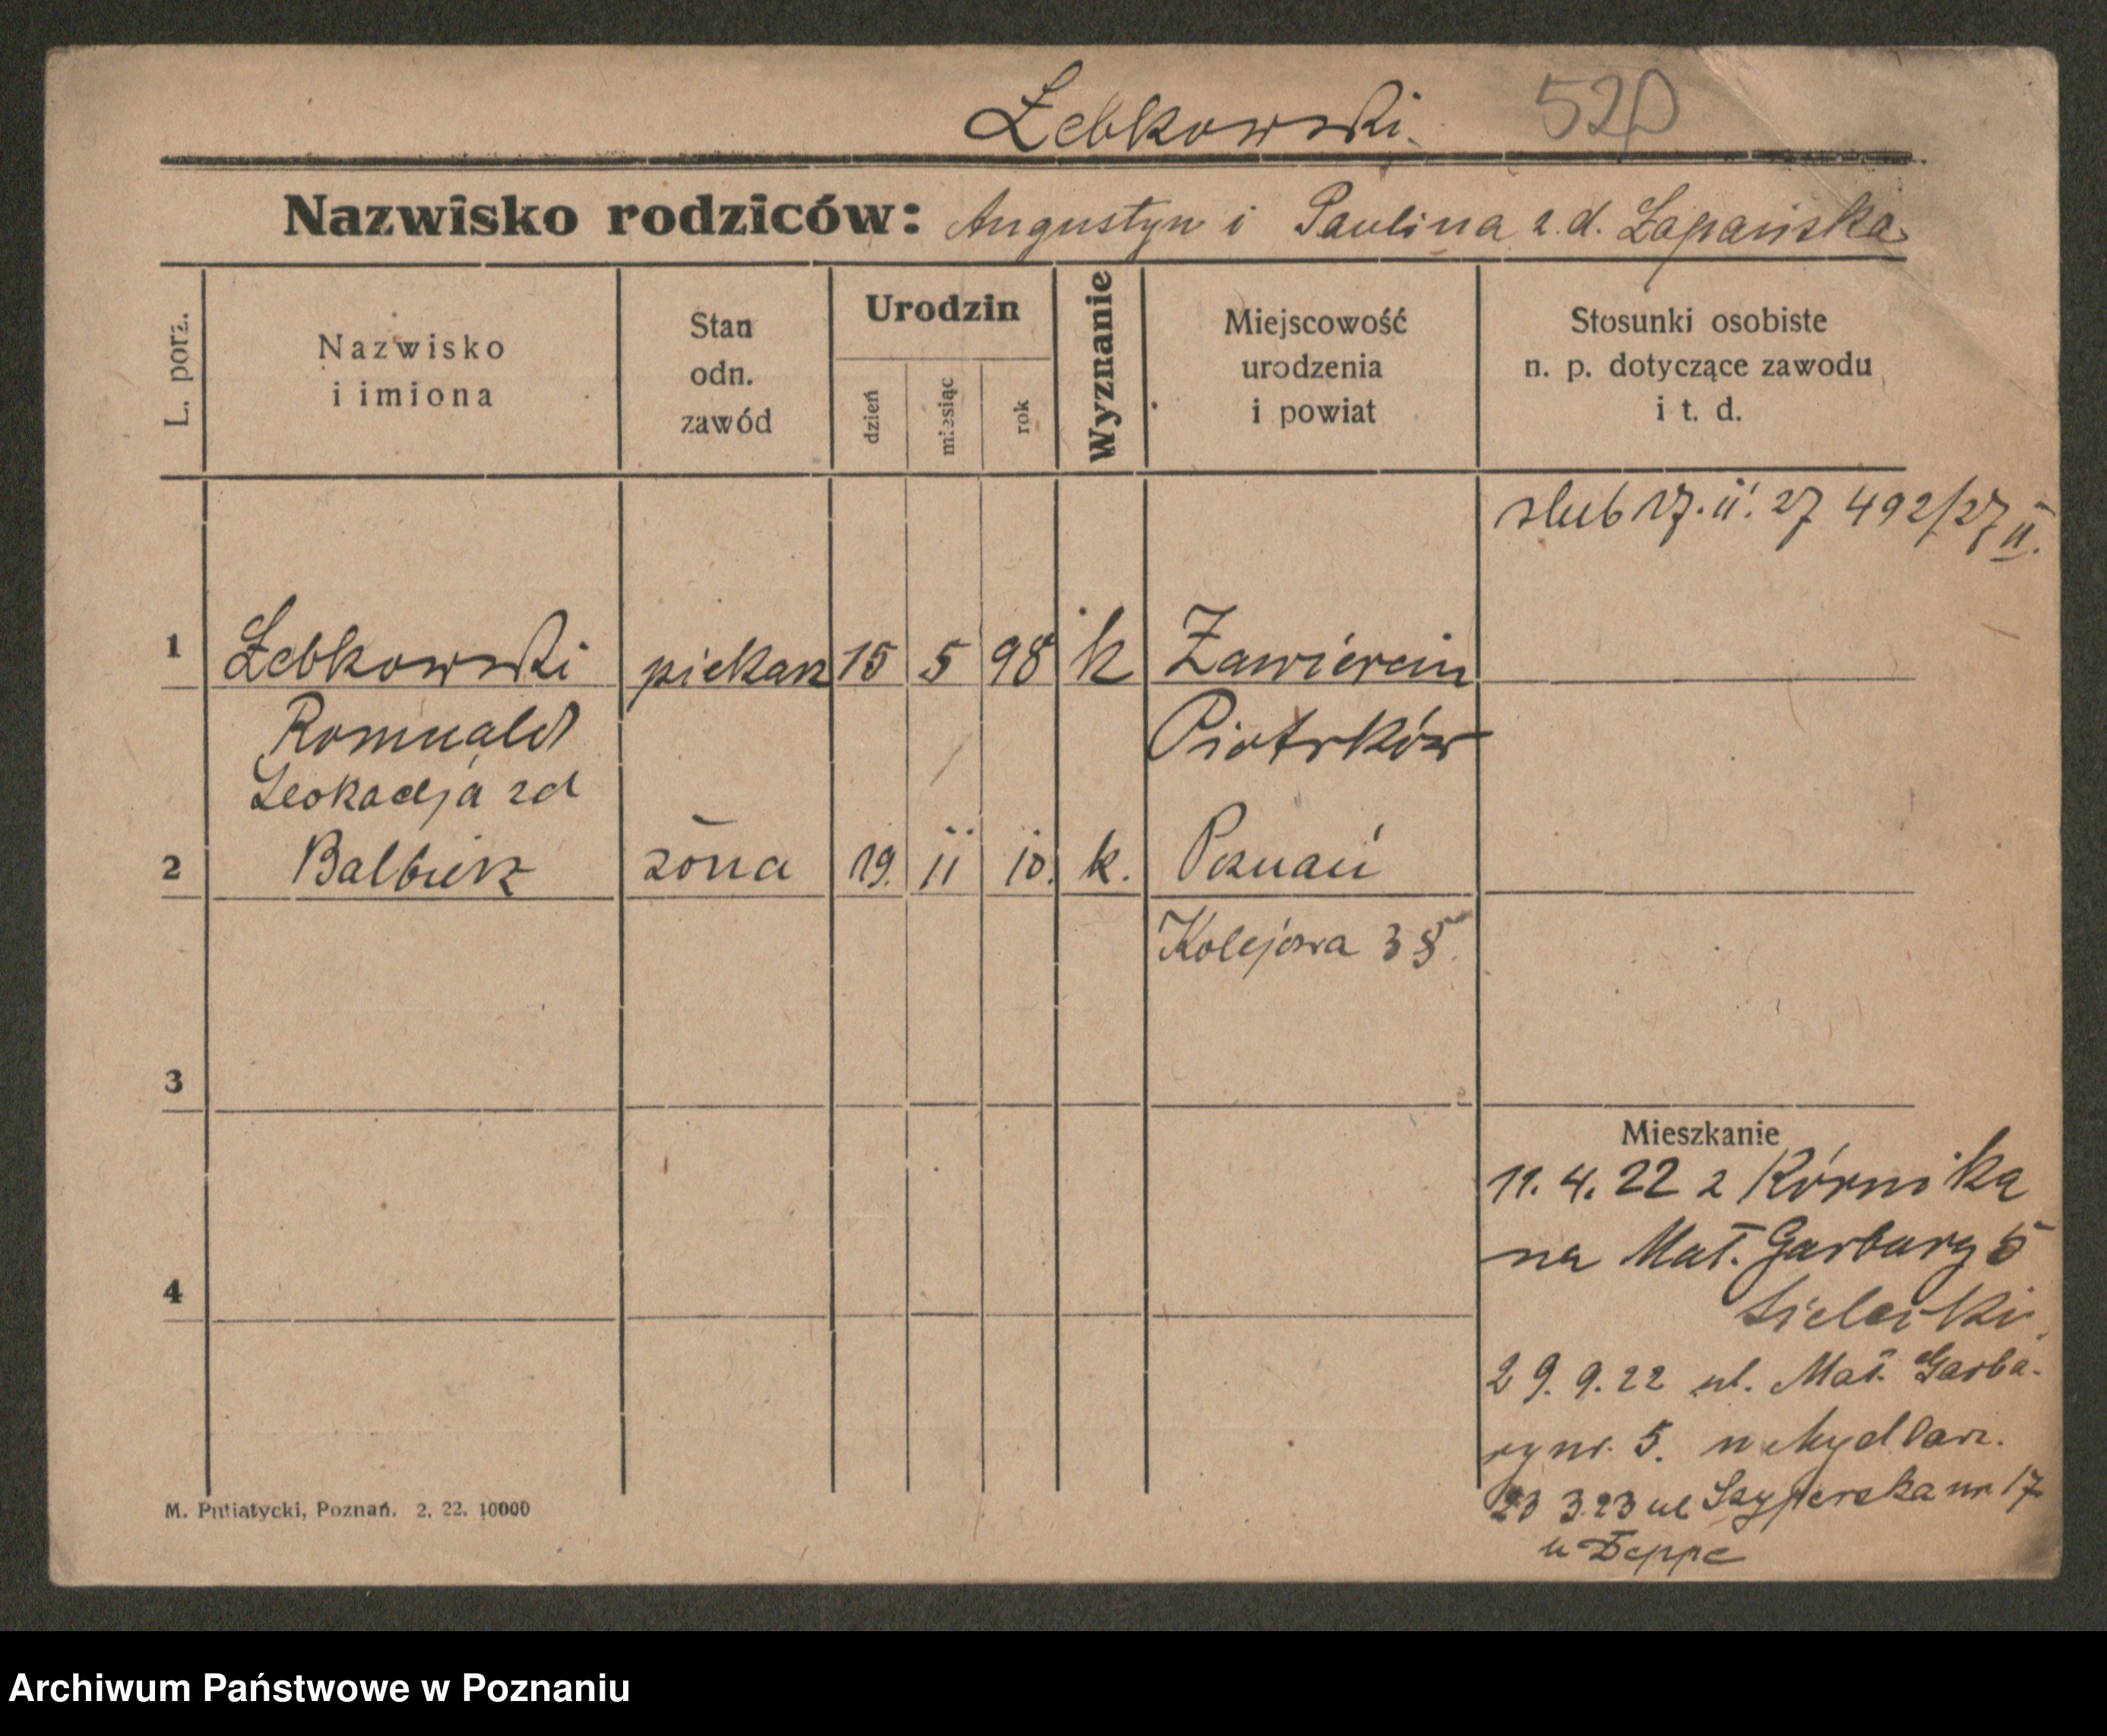 Łebkowski. 520
Nazwisko rodziców: Augustyn i Paulina z.d. Łapańska
L. porz.
Nazwisko
i imiona
Stan
odn.
zawód
Urodzin
dzień
miesiąc
rok
Wyznanie
Miejscowość
urodzenia
i powiat
Stosunki osobiste
n. p. dotyczące zawodu
i t. d.
slub 17. II. 27 492/27 II.
1 Łebkowski piekarz 15 5 98 k Zawiercin
Romuald Piotrków
Leokadja zd
2 Balbierz żona 19. II 10. k. Poznań
Kolejowa 35.
3
Mieszkanie
11. 4. 22 z Kórnika
na Mał. Garbary 5
4
Sieleński
29. 9. 22 ul. Mał. Garba-
ry nr. 5. u Mydlarz.
23 3.23 ul Szyperska nr 17
u Deppe
M. Putiatycki, Poznań. 2. 22. 10000
Archiwum Państwowe w Poznaniu